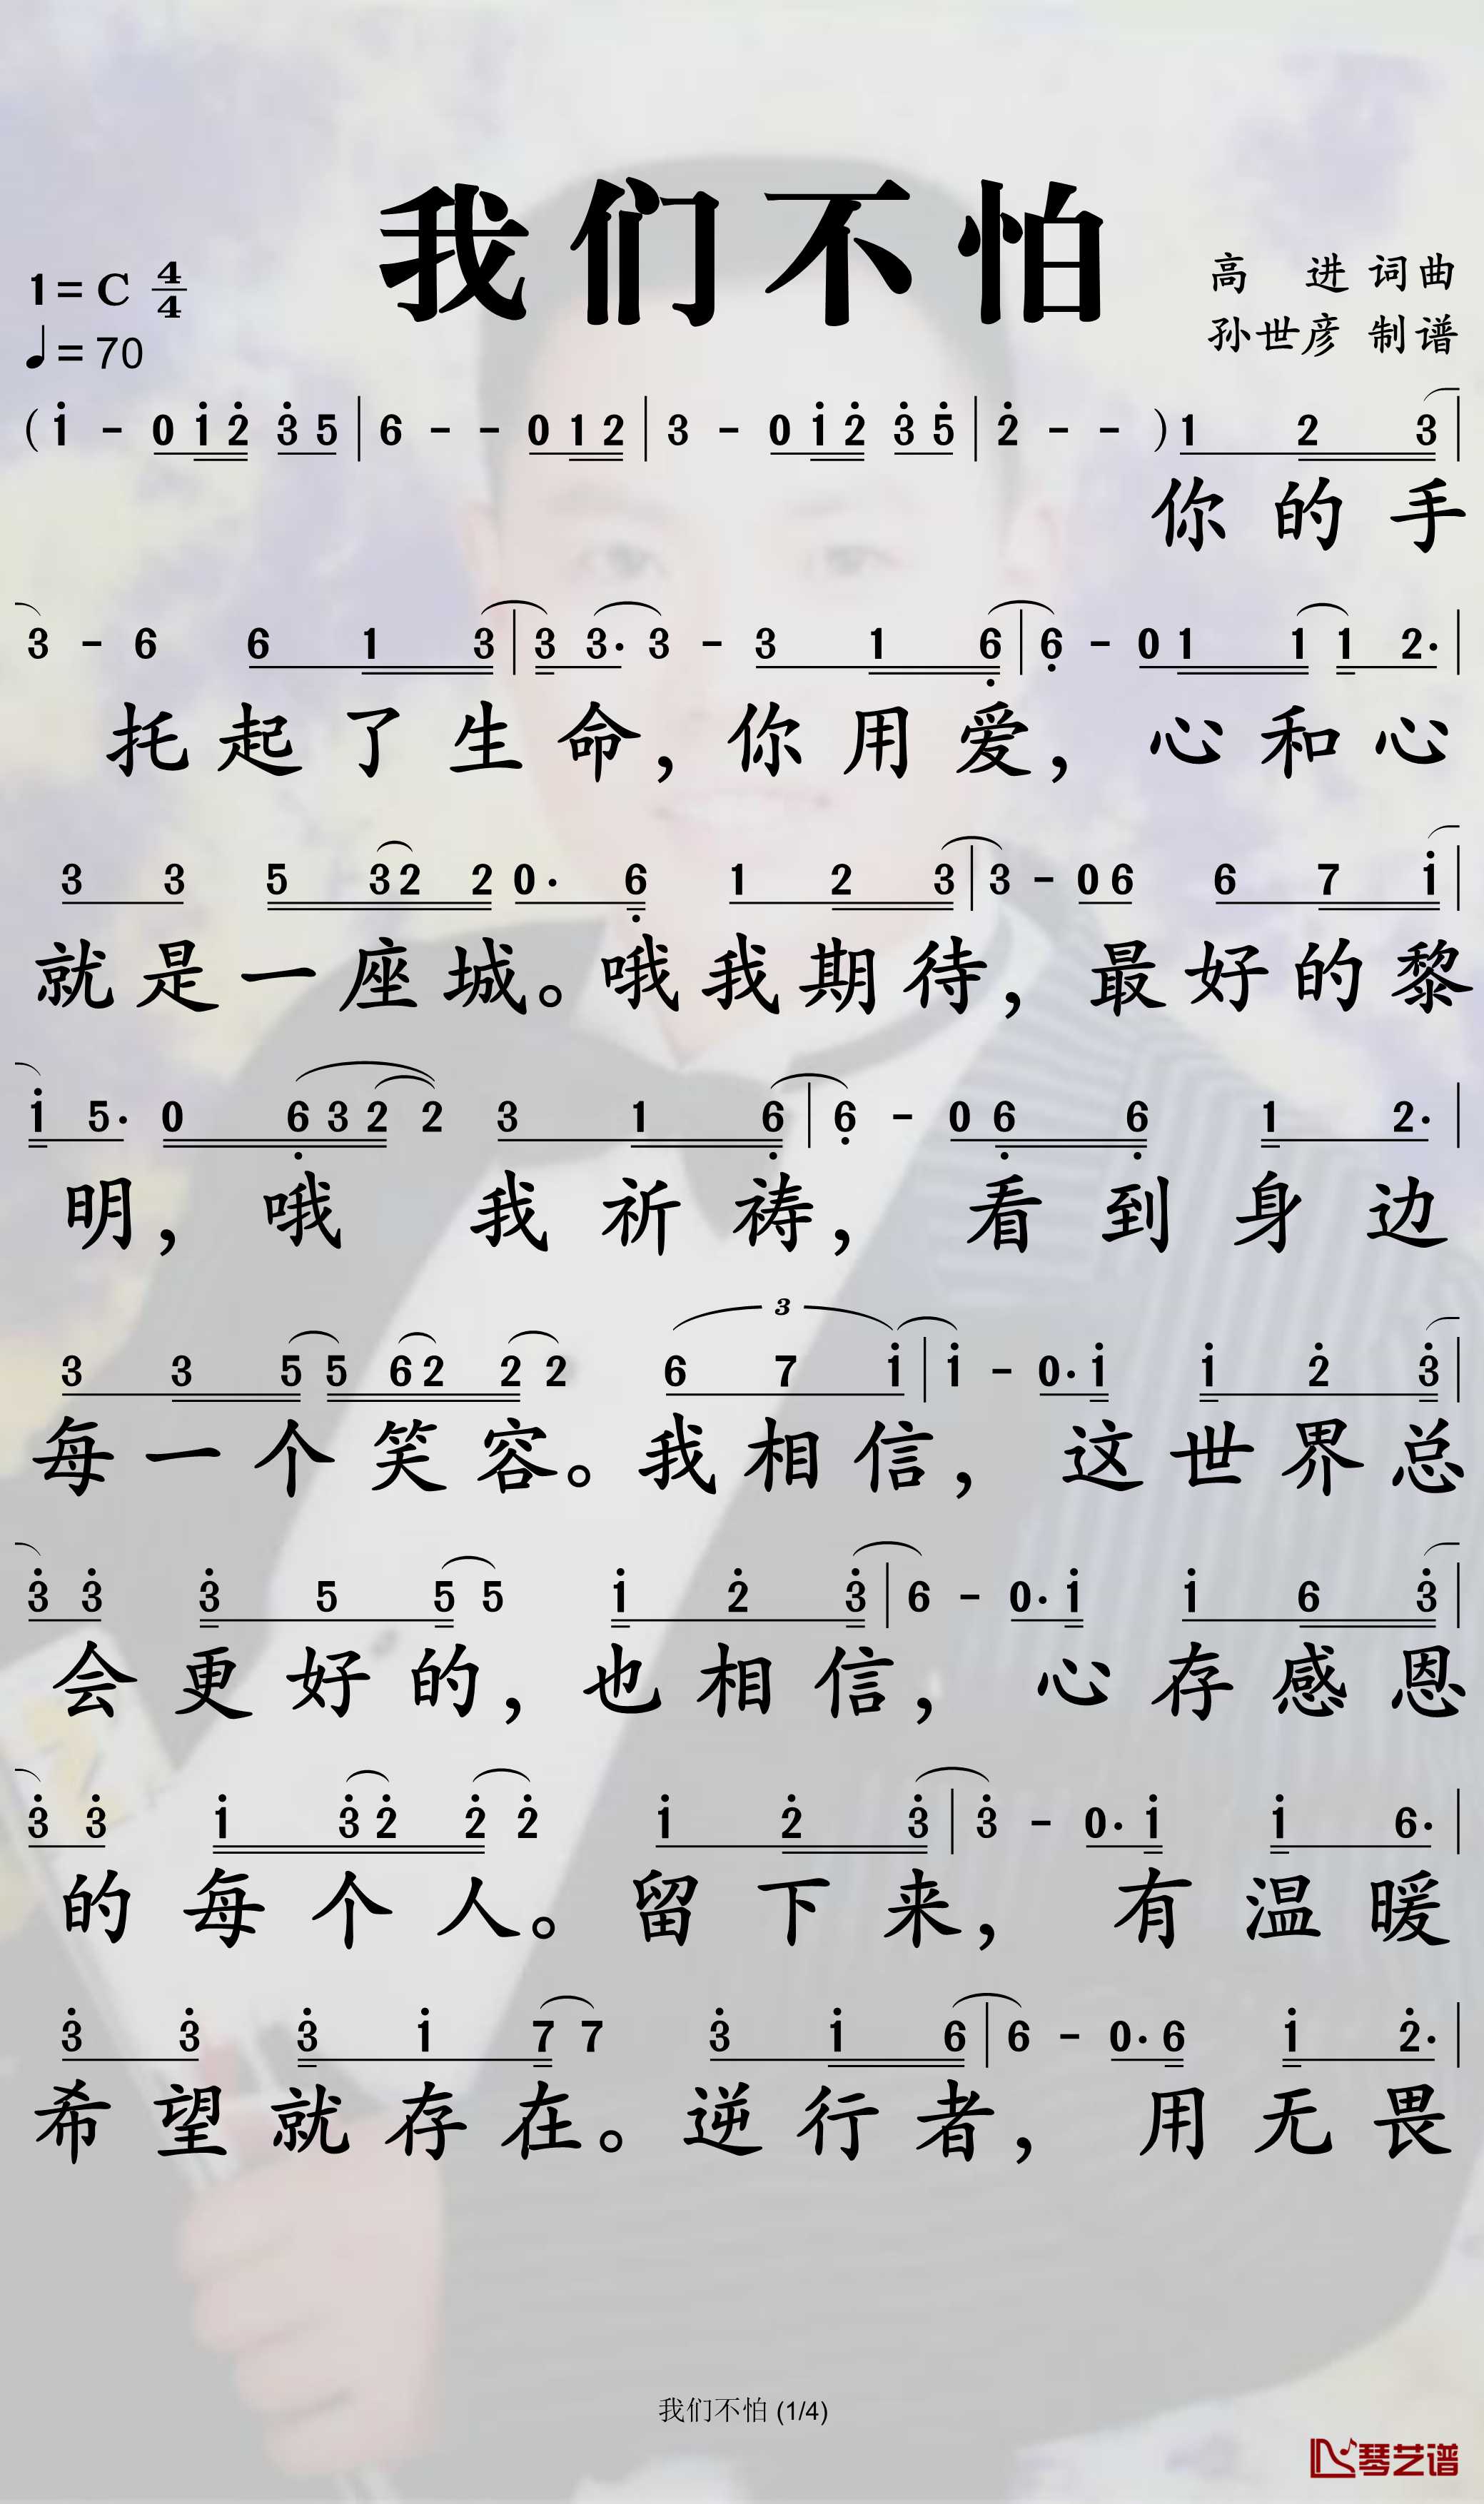 我们不怕
1=C 4/4
♩=70
高 进 词曲
孙世彦 制谱
( i - 0 i 2 3 5 | 6 - - 0 1 2 | 3 - 0 i 2 3 5 | 2 - - ) 1 2 3 |
你的手
3 - 6 6 1 3 | 3 3· 3 - 3 1 6 | 6 - 0 1 1 1 2· |
托起了生命，你用爱，心和心
3 3 5 3 2 2 0· 6 1 2 3 | 3 - 0 6 6 7 i |
就是一座城。哦我期待，最好的黎
i 5· 0 6 3 2 2 3 1 6 | 6 - 0 6 6 1 2· |
明，哦 我祈祷，看到身边
3
3 3 5 5 6 2 2 2 6 7 i | i - 0· i i 2 3 |
每一个笑容。我相信，这世界总
3 3 3 5 5 5 i 2 3 | 6 - 0· i i 6 3 |
会更好的，也相信，心存感恩
3 3 i 3 2 2 2 i 2 3 | 3 - 0· i i 6· |
的每个人。留下来，有温暖
3 3 3 i 7 7 3 i 6 | 6 - 0· 6 i 2· |
希望就存在。逆行者，用无畏
我们不怕 (1/4)
琴艺谱